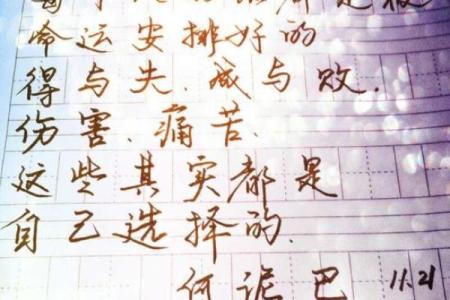 命运安排好的
得与失.成与败.
伤害.痛苦.
这些其实都是
自己选择的.
何泥巴 11.21